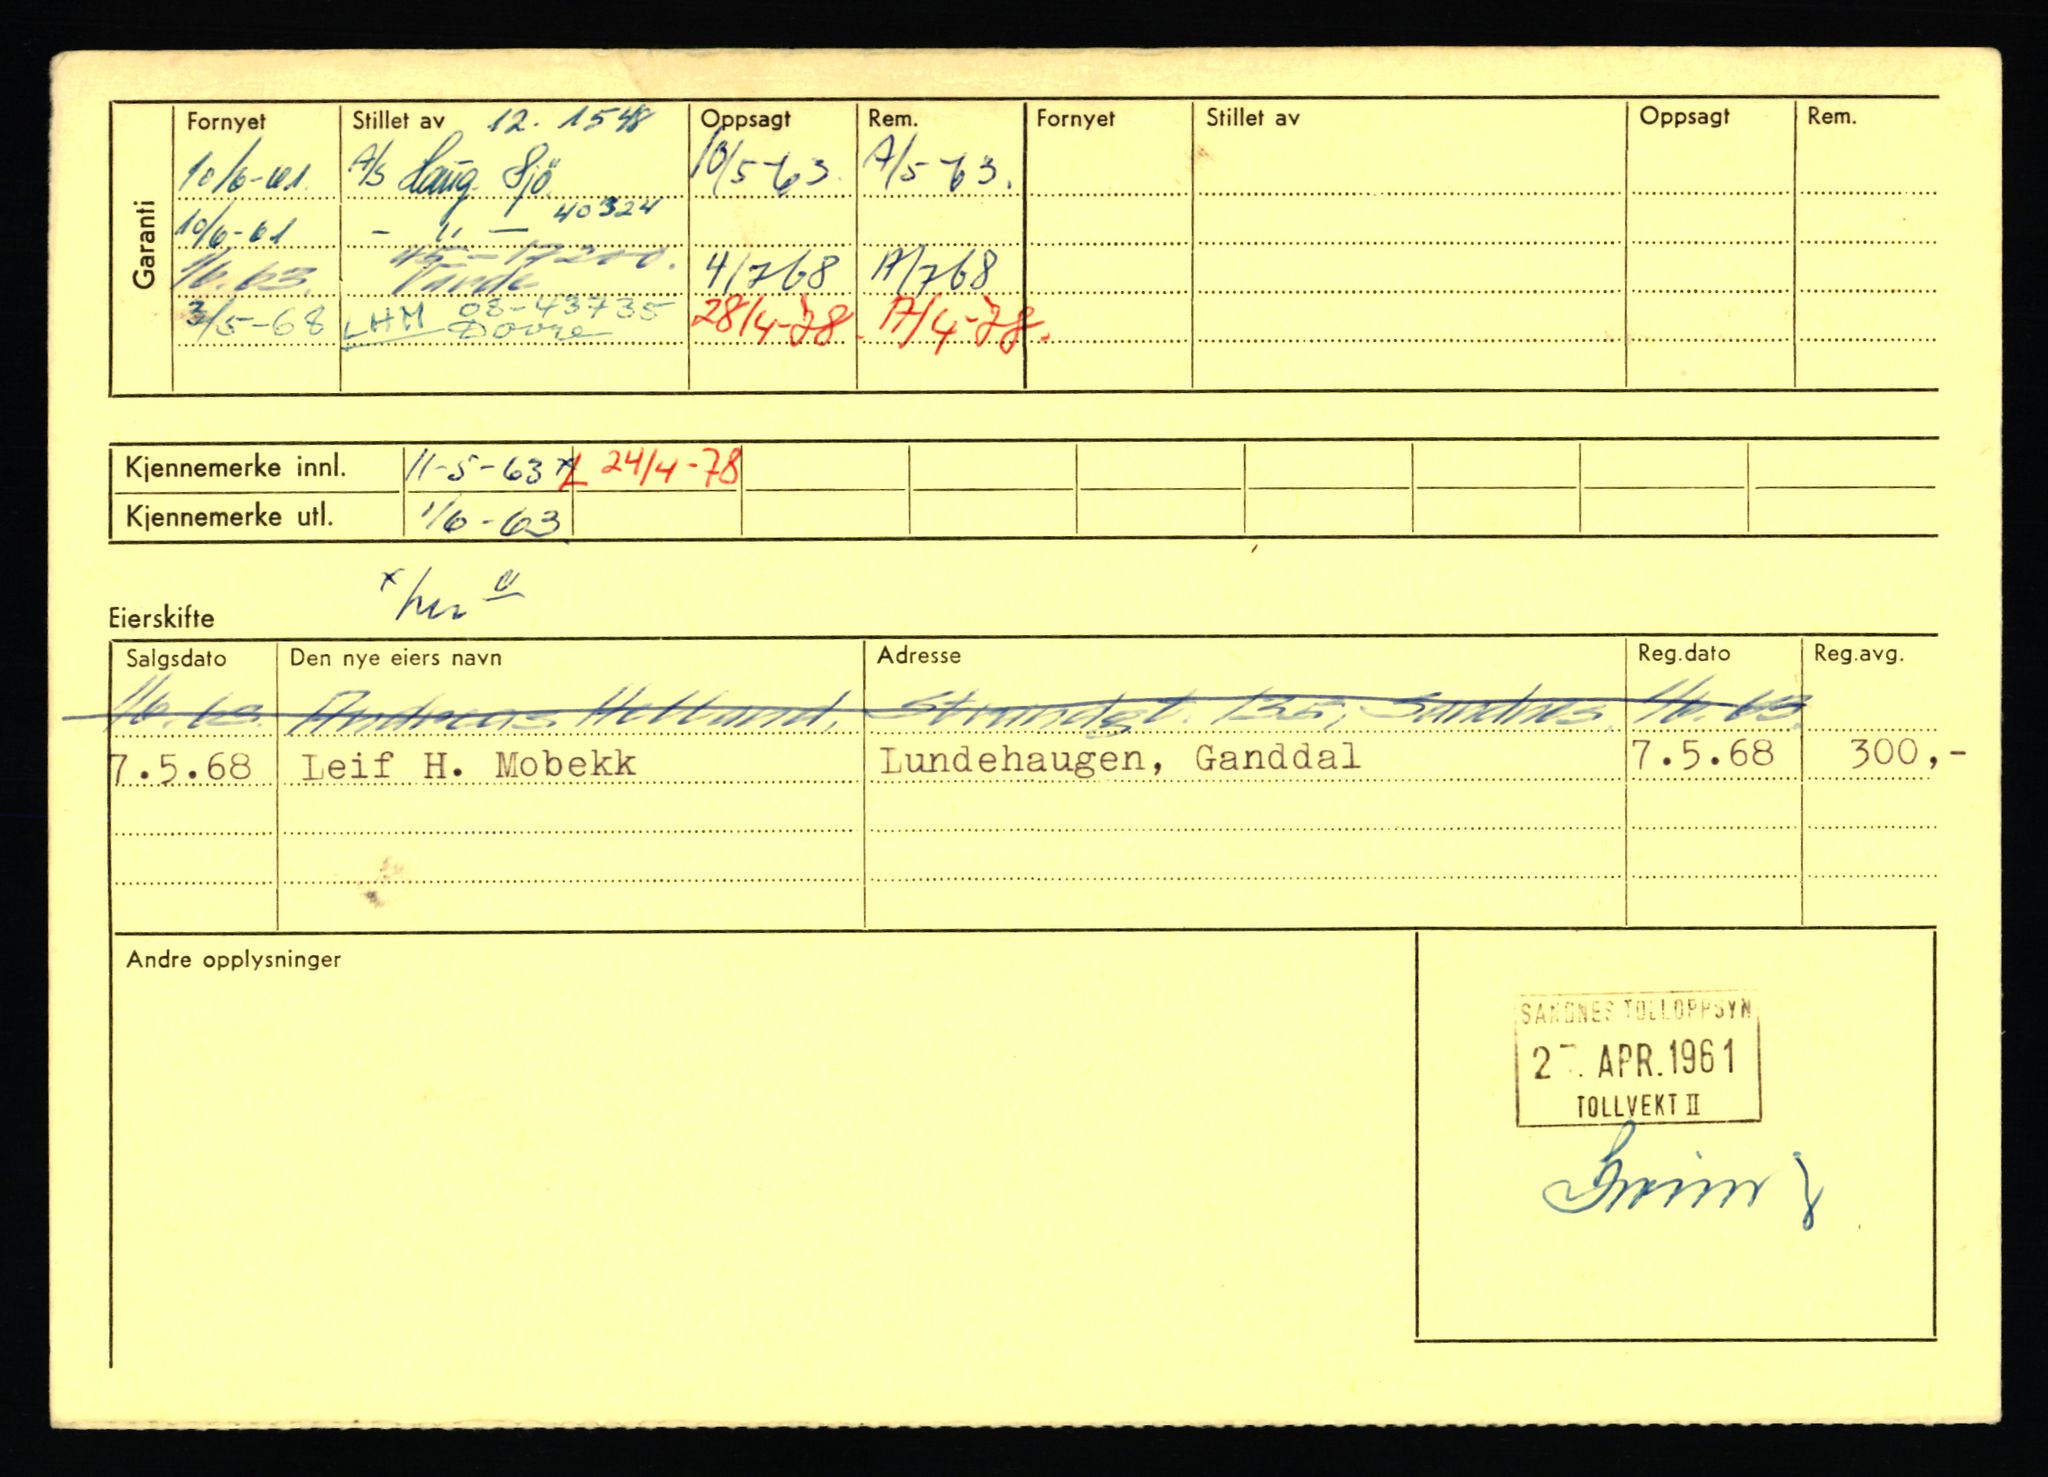 Garanti
Fornyet Stillet av 12. 1548 Oppsagt Rem. Fornyet Stillet av Oppsagt Rem.
10/6-61. A/S Haug. Sjö. 10/5-63. A/5-63.
10/6-61 - " - 40324
1/6.63. 45-17200. 4/768 A/768
3/5-68 LHM 08-43735 28/4-78. A/4-78.
Dovre
Kjennemerke innl. 11-5-63 x L 24/4-78
Kjennemerke utl. 1/6-63
x
Eierskifte
Salgsdato Den nye eiers navn Adresse Reg.dato Reg.avg.
1/6.63. Andreas Helland, Strandgt. 135, Sandnes. 1/6.63.
7.5.68 Leif H. Mobekk Lundehaugen, Ganddal 7.5.68 300,-
Andre opplysninger
SANDNES TOLLOPPSYN
2 . APR. 1961
TOLLVEKT II